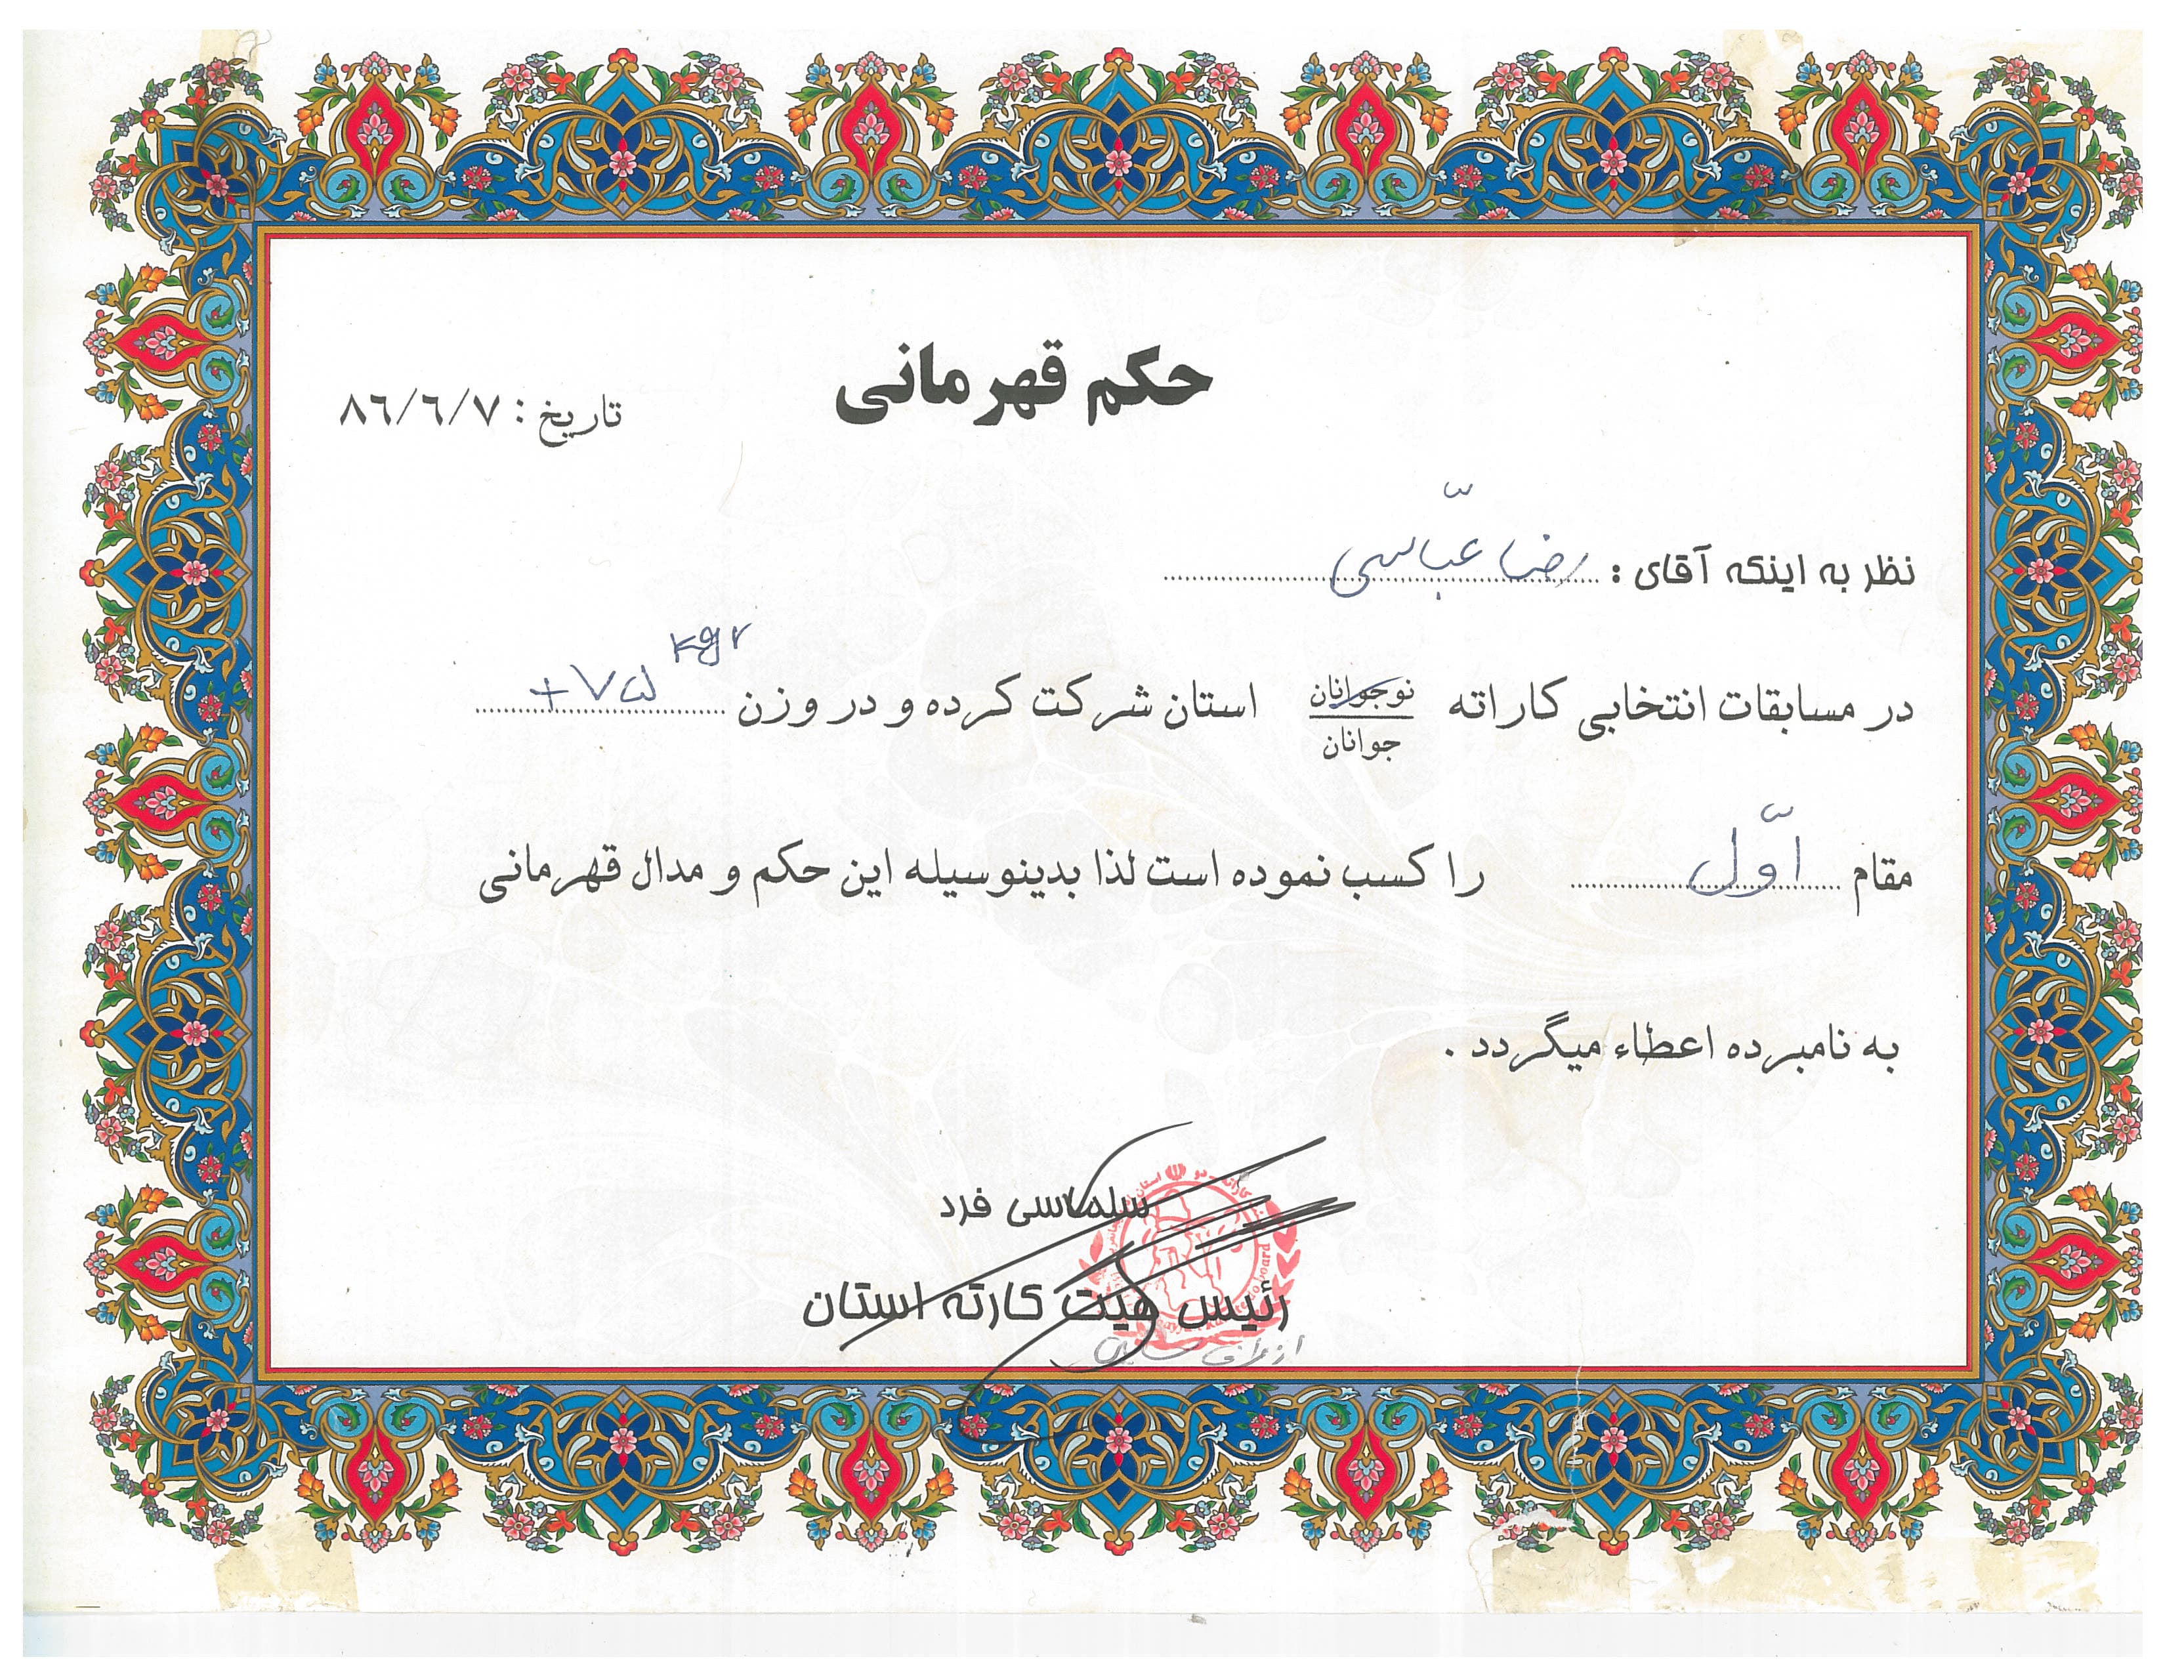 حکم قهرمانی
تاریخ : ٨٦/٦/٧
نظر به اینکه آقای : رضا عبّاسی
در مسابقات انتخابی کاراته نوجوانان جوانان استان شرکت کرده و در وزن +۷۵ kgr
مقام اوّل را کسب نموده است لذا بدینوسیله این حکم و مدال قهرمانی
به نامبرده اعطاء میگردد .
سلماسی فرد
رئیس هیئت کارته استان
از طرف